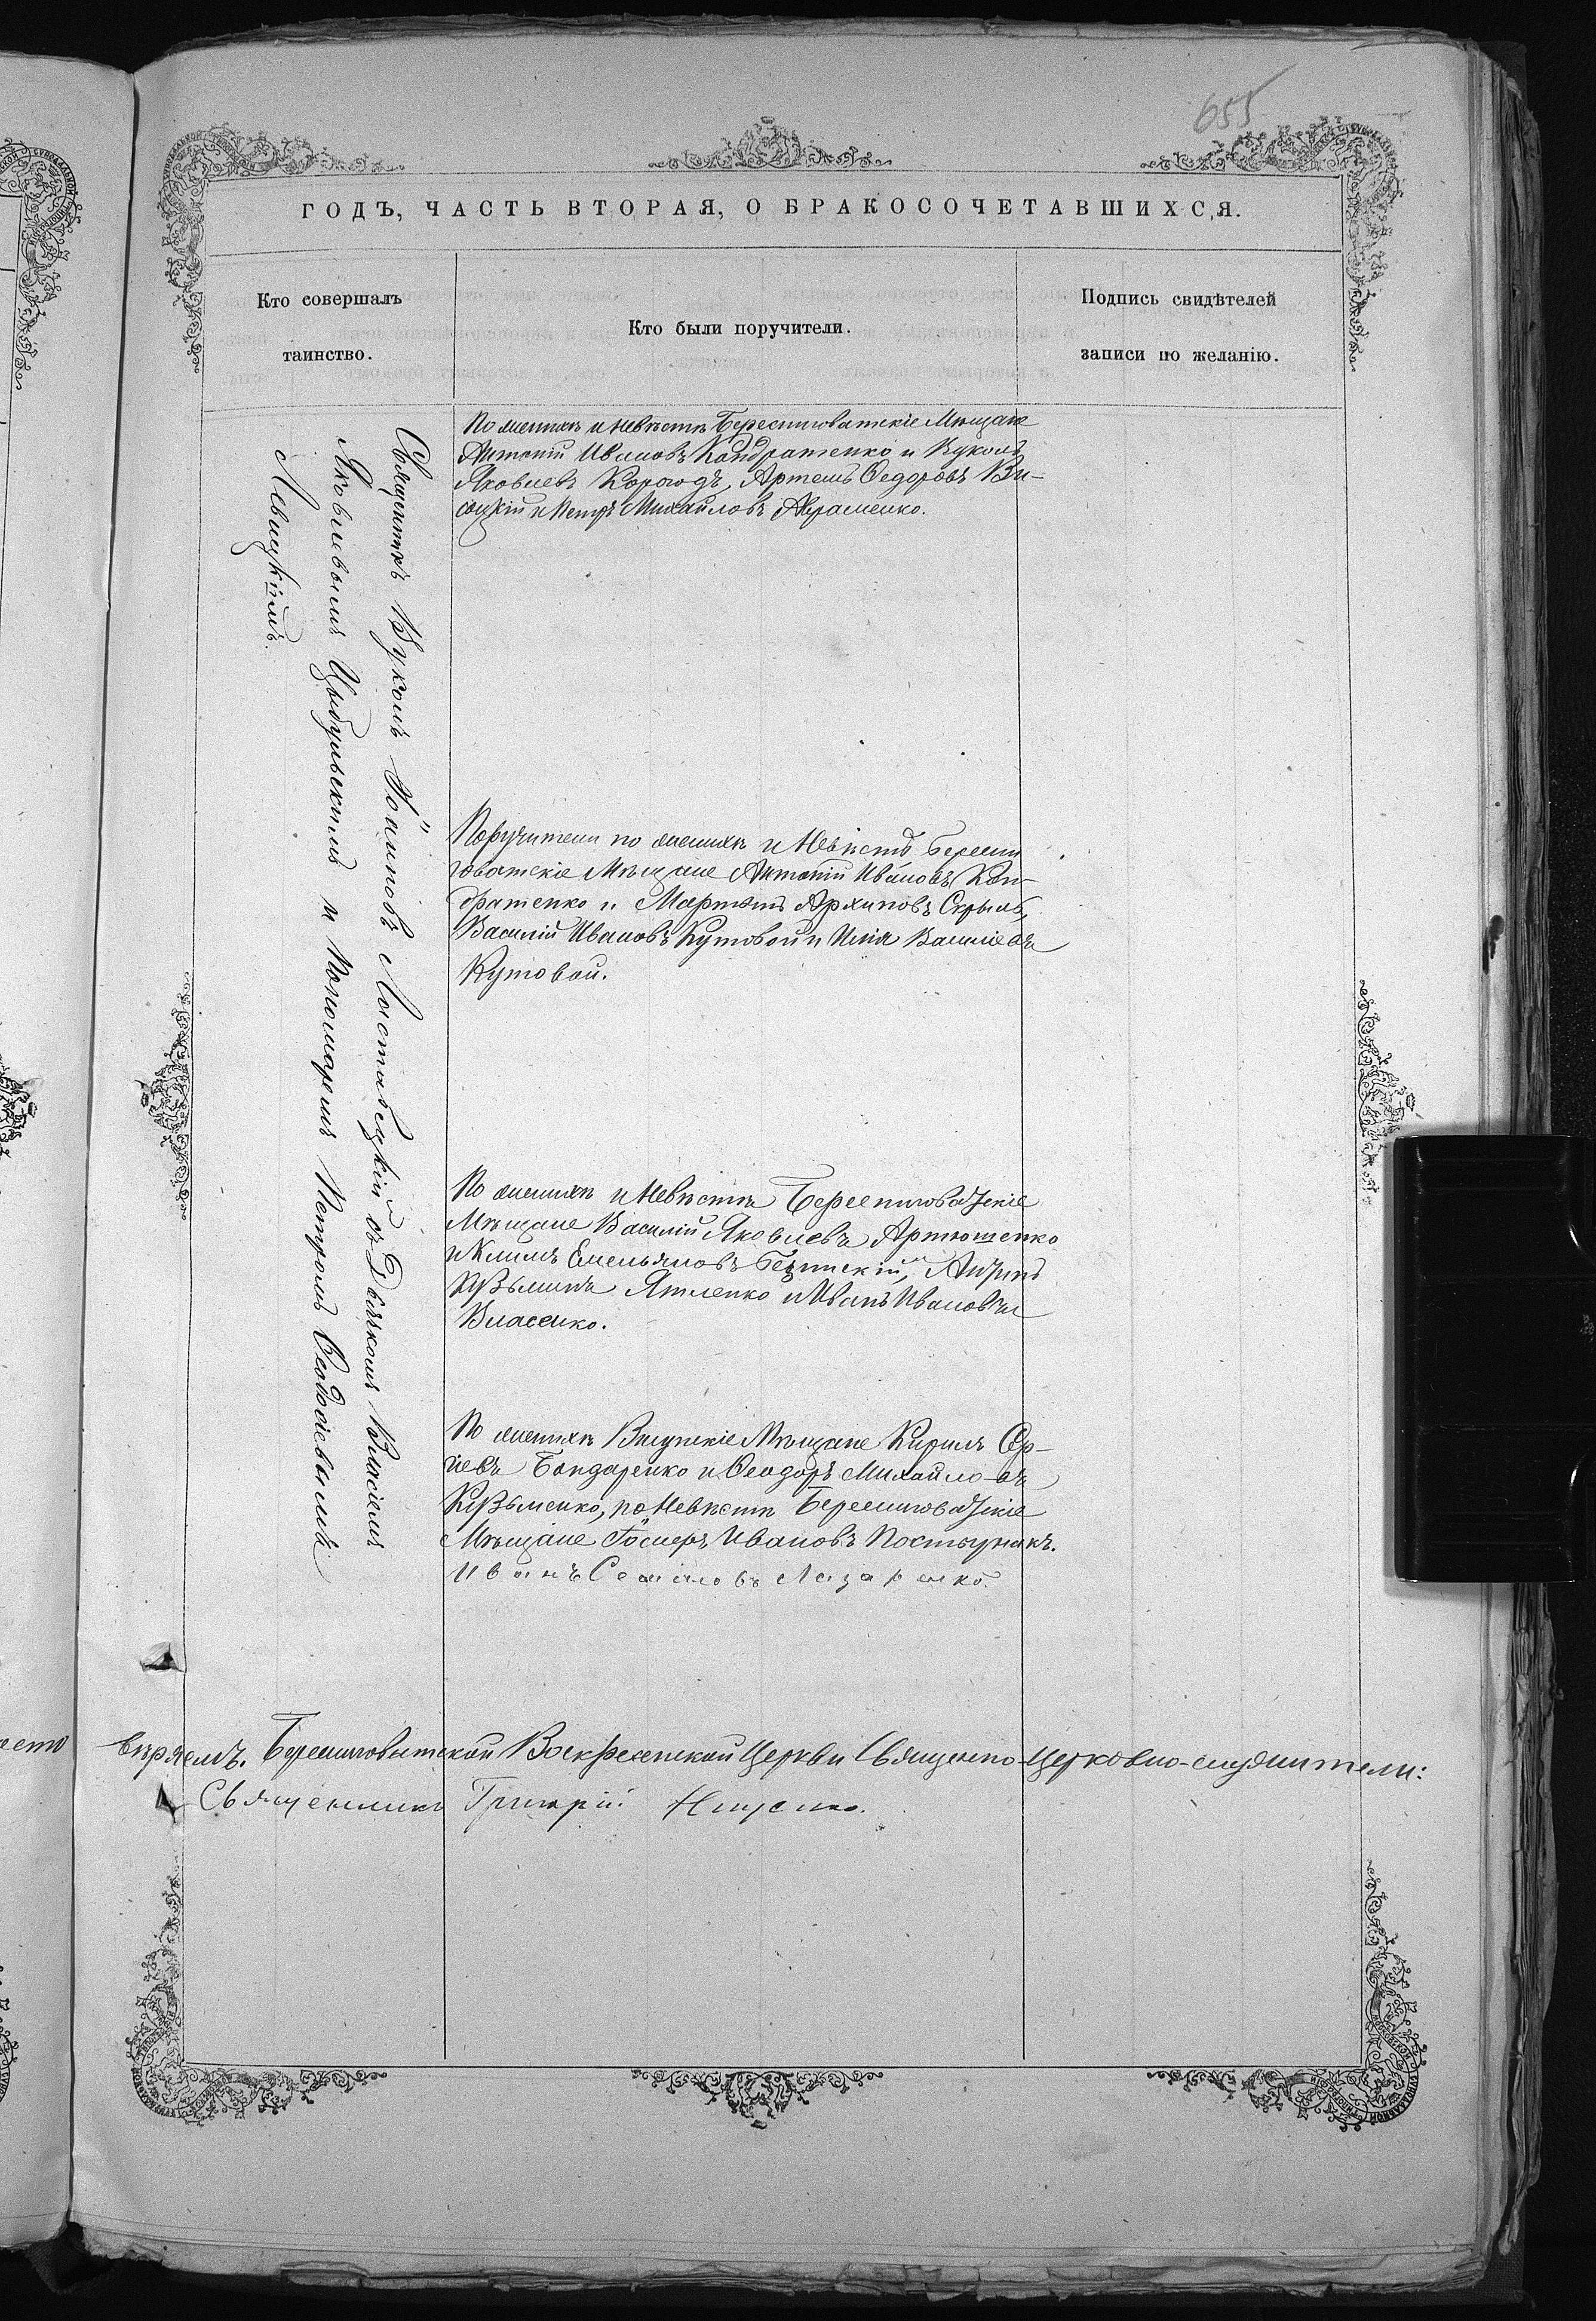 655
ГОДЪ, ЧАСТЬ ВТОРАЯ, О БРАКОСОЧЕТАВШИХСЯ.
Кто совершалъ
таинство.
Кто были поручители.
Подпись свидѣтелей
записи по желанію.
Священникъ Вуколъ Іоанновъ съ Дьячкомъ Власіемъ
Яковлевымъ Цыбульскимъ и Пономаремъ Петромъ Ѳеодосіевымъ
Левицкимъ.
По женихѣ и невѣстѣ Берестиговатскіе Мѣщане
Антоній Ивановъ Кондратенко и Вуколъ
Яковлевъ Корогодъ, Артемъ Ѳедоровъ Ви-
соцкій и Петръ Михайловъ Авраменко.
Поручители по женихѣ и Невѣстѣ Берести
говатскіе Мѣщане Антоній Ивановъ Кон-
дратенко и Мартинъ Архиповъ Скрыль,
Василій Ивановъ Кутовой и Илія Василіевъ
Кутовой.
По женихѣ и Невѣстѣ Берестиговатскіе
Мѣщане Василій Яковлевъ Артюшенко
и Климъ Емельяновъ Андрей
Кузьминъ Ятленко и Иванъ Ивановъ
Власенко.
По женихѣ Висунскіе Мѣщане Кирилъ Сер-
гіевъ Бондаренко и Ѳеодоръ Михайловъ
Кузьменко, по Невѣстѣ Берестиговатскіе
Мѣщане Іосифъ Ивановъ Постчунакъ.
Иванъ Лазаренко.
вѣряемъ. Берестиговатской Воскресенской Церкви Священно-Церковно-служители:
Священникъ Григорій